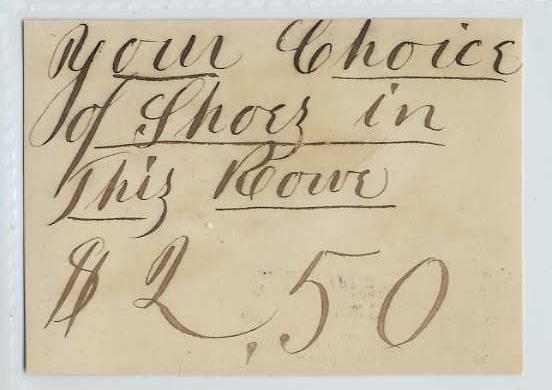 Your Choice
of Shoes in
This Rowe
$2.50